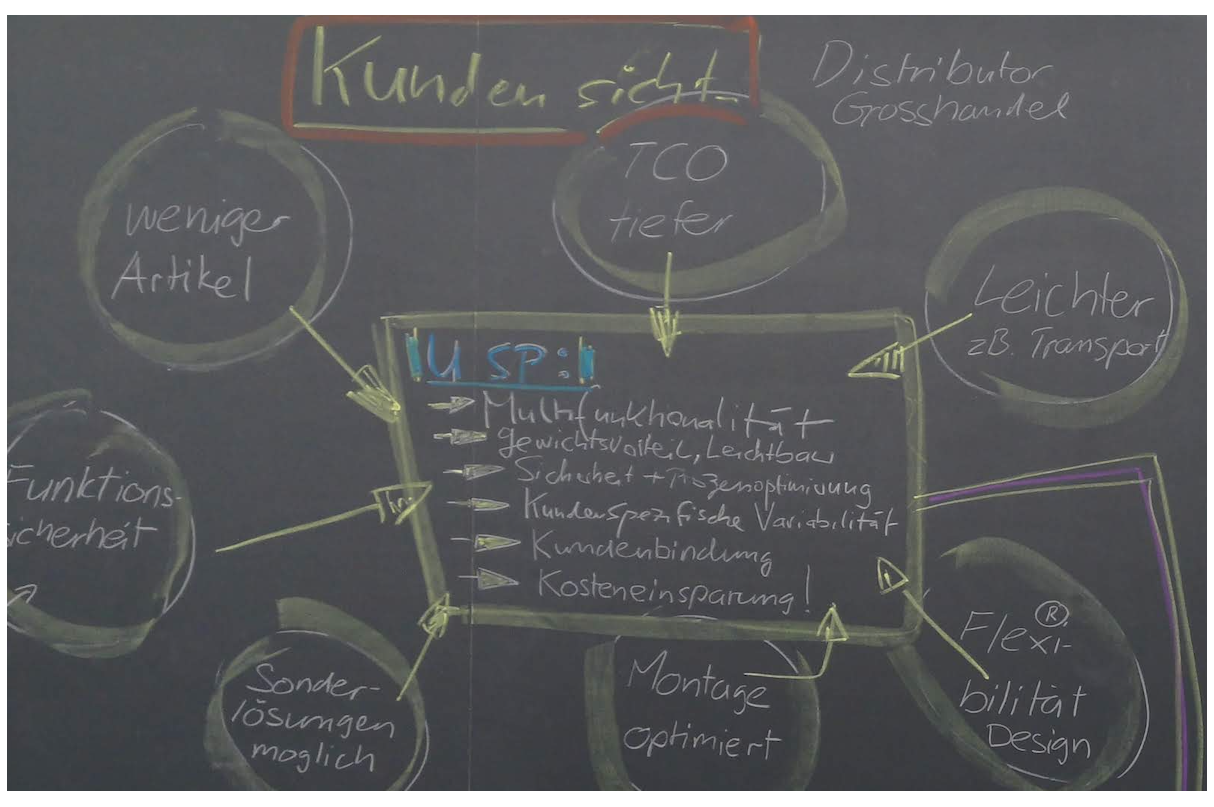 Kundensicht
Distributor
Grosshandel
TCO
tiefer
weniger
Artikel
Leichter
zB. Transport
USP:
Multifunktionalität
Gewichtsvorteil, Leichtbau
Sicherheit + Prozessoptimierung
Kundenspezifische Variabilität
Kundenbindung
Kosteneinsparung!
Funktions-
sicherheit
Sonder-
lösungen
moglich
Montage
optimiert
Flexi-®
bilität
Design